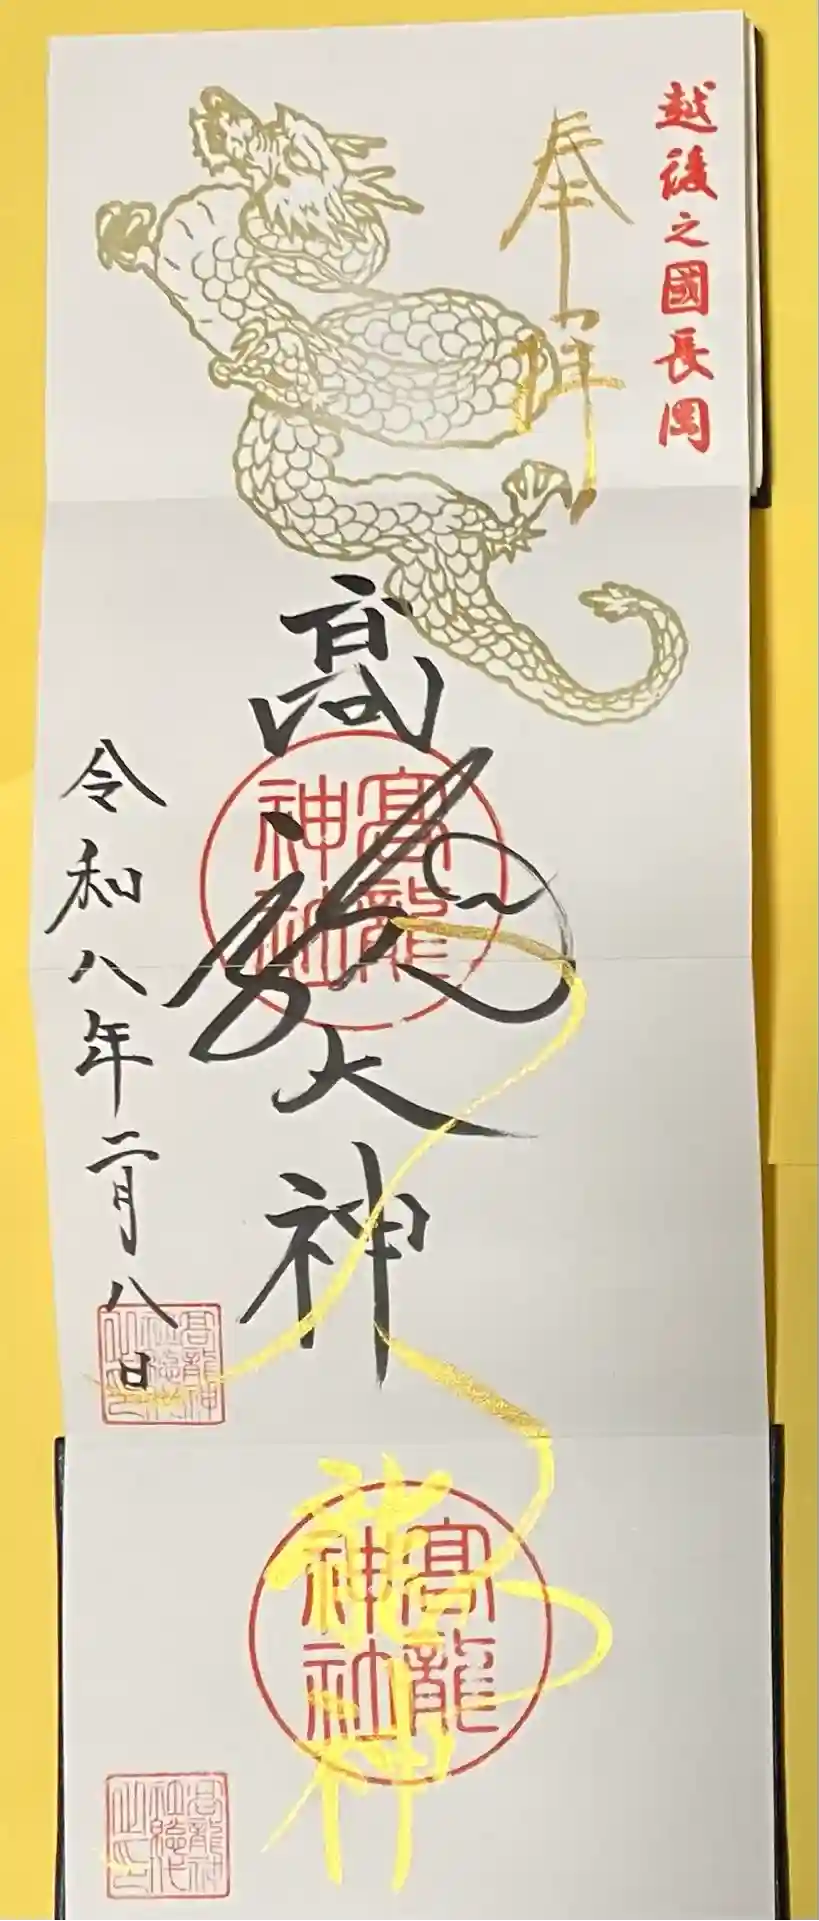 越後之國長岡
奉拝
高龍大神
高龍
神社
令和八年二月八日
高龍神
社総代
之印
龍神
高龍
神社
高龍神
社総代
之印